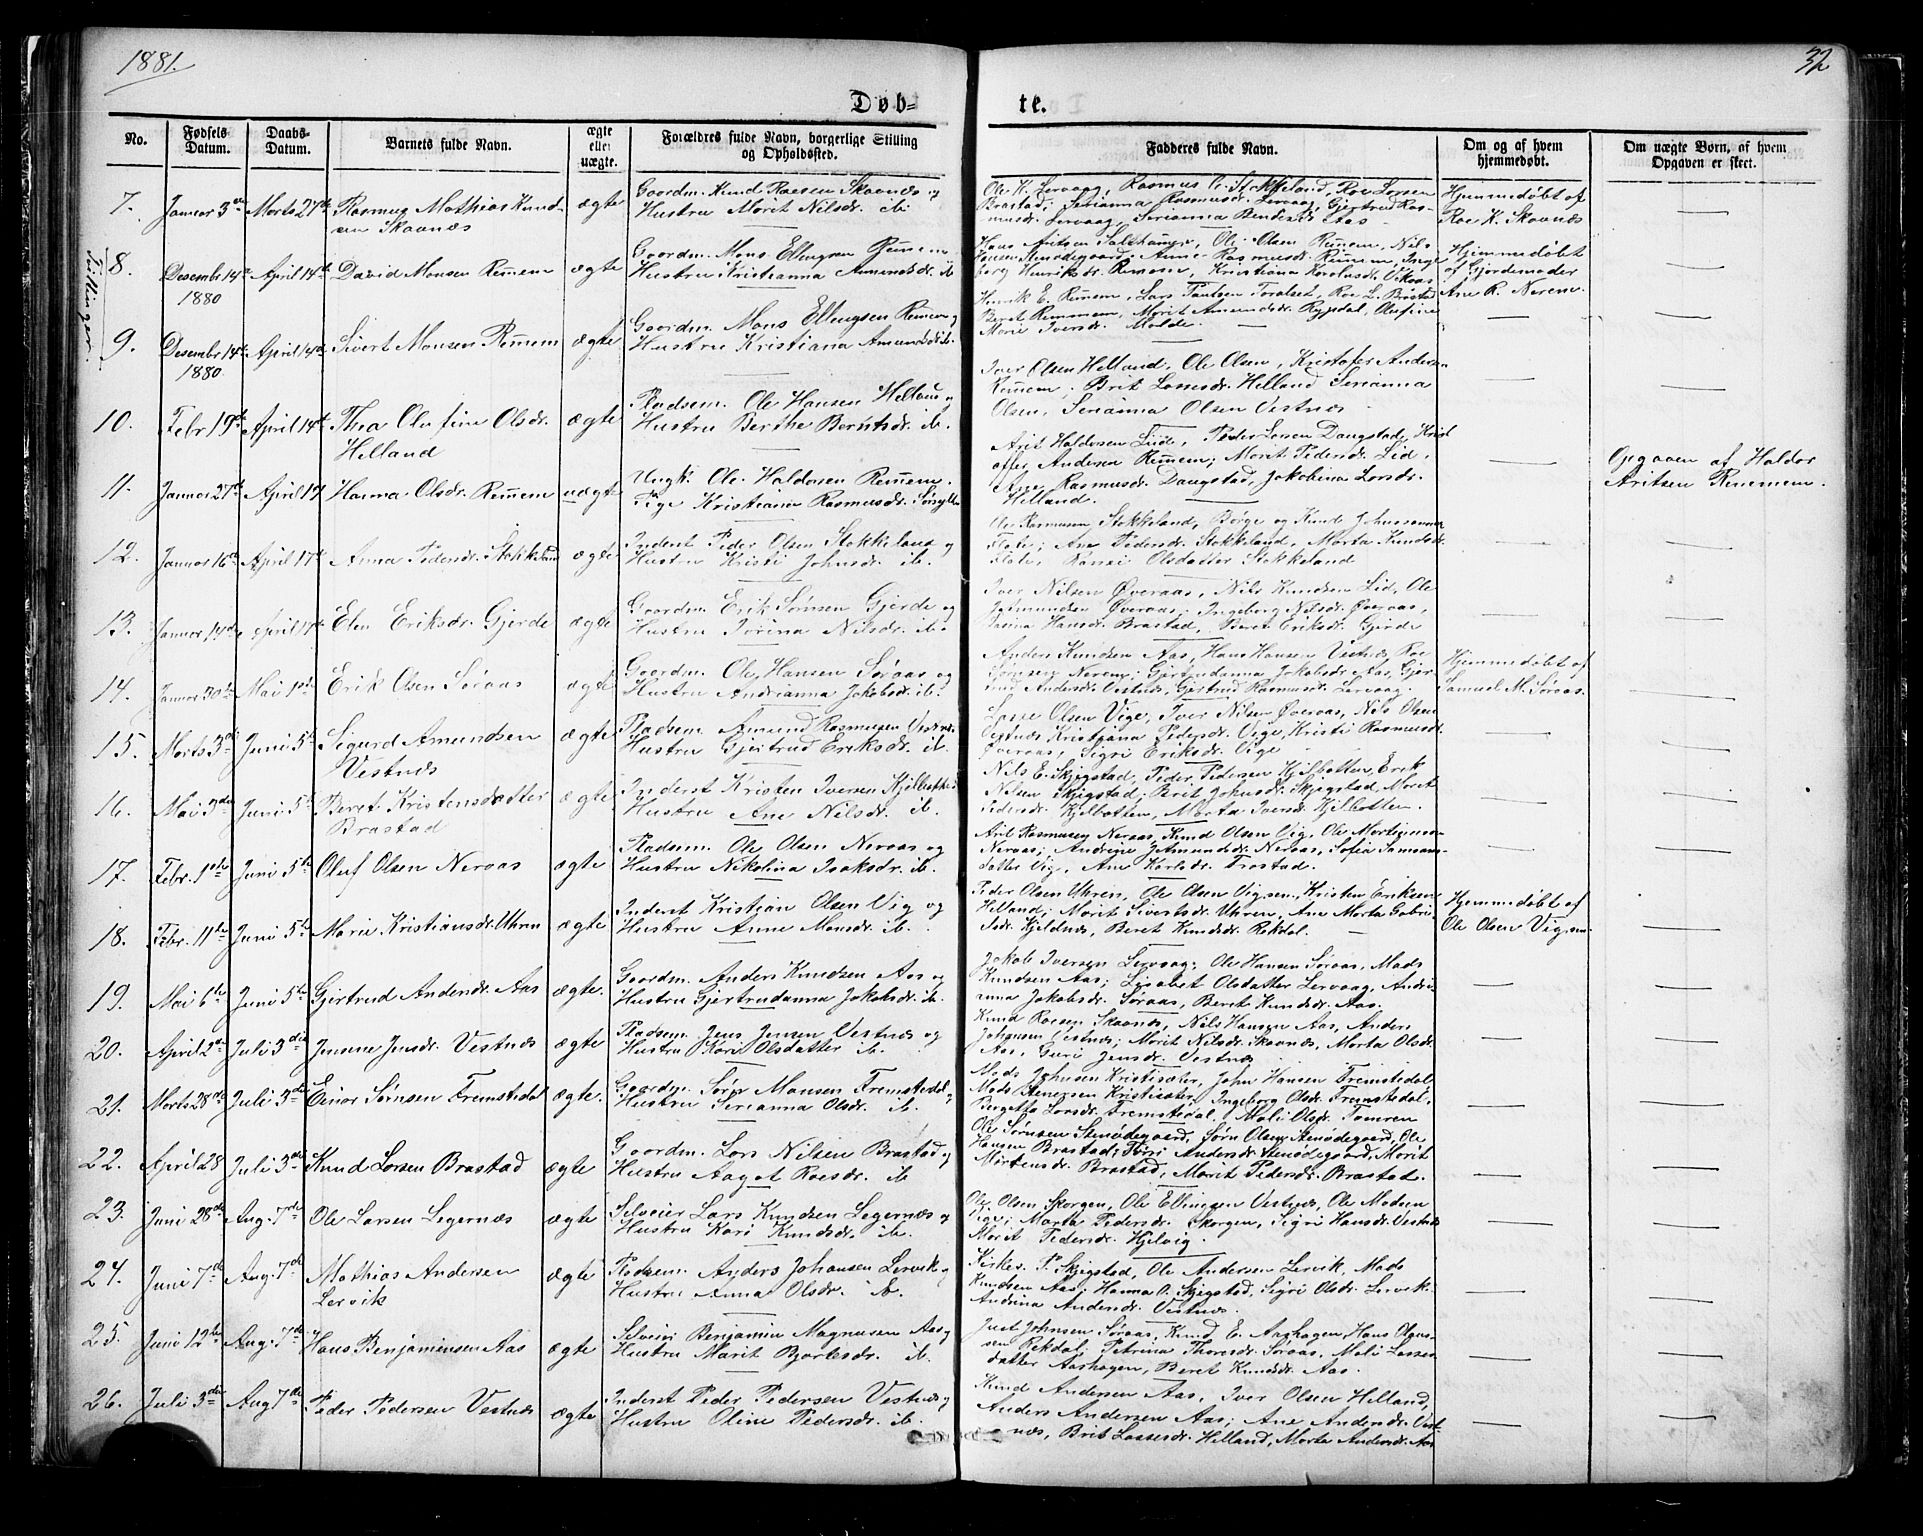 1881.
32
Døb-
te.
No.
Fødsels Datum.
Daabs- Datum.
Barnets fulde Navn.
ægte eller uægte.
Forældres fulde Navn, borgerlige Stilling og Opholdssted.
Fadderes fulde Navn.
Om og af hvem hjemmedøbt.
Om uægte Børn, af hvem Opgaven er skeet.
7. Januar 3die Marts 27de Rasmus Mathias Knud-
sen Skaanæs
ægte
Gaardm. Knud Roesen Skaanæs og
Hustru Marit Nilsdr. ib.
Ole K. Lervaag, Rasmus Stokkeland, Roe Larsen
Brastad, Serianna Rasmusdr. Lervaag, Gjertrud Ras-
musdr. Lervaag, Serianna Aas
Hjemmedøbt af
Roe K. Skaanæs
Tvillinger.
8. Desembr 14de April 14de David Monsen Remem
1880
ægte
Gaardm. Mons Ellingsen Remem
Hustru Kristianna Amundsdr. ib
Hans Salthammer, Ole Olsen Remem, Nils
Hansen Stenødegaard; Anne Rasmusdr. Remem, Inge
borg Henriksdr. Remem, Kristiana Karolusdr. Vikaas
Hjemmedøbt
af Gjordemoder
Ane R. Nerem
9. Desembr 14de April 14de Sivert Monsen Remem
1880
ægte
Gaardm. Mons Ellingsen Remem og
Hustru Kristiana Amundsdr ib.
Henrik E. Remem, Lars Paulsen Toralset, Roe L. Brastad
Beret Remmem, Marit Amundsdr. Rypdal, Olufine
Marie Iversdr. Molde
10. Febr 19de April 14de Thea Olufine Olsdr.
Helland
ægte
Pladsem. Ole Hansen Helland og
Hustru Berthe Berntsdr. ib.
Iver Olsen Helland, Ole Olsen, Kristofer Andersen
Remem, Brit Lassesdr. Helland Serianna
Olsen, Serianna Olsen Vestnæs
11. Januar 27de April 17 Hanna Olsdr. Remem
uægte
Ungk. Ole Haldorsen Remem
Pige Kristiana Rasmusdr.
Arit Haldorsen Lid, Peder Larsen Daugstad, Krist
offer Andersen Remem; Marit Pedersdr. Lid,
Ane Rasmusdr. Daugstad, Jakobina Larsdr.
Helland.
Opgaven af Haldor
Aritsen Rememem.
12. Januar 16de April 17de Anna Pedersdr. Stokkeland
ægte
Inderst Peder Olsen Stokkeland og
Hustru Kristi Johnsdr. ib.
Ole Rasmusen Stokkeland, Børge og Knud Johnssønner
Flate; Ane Pedersdr. Stokkeland, Marta Knudsdr.
Flate, Olsdatter Stokkeland
13. Januar 14de April 17de Elen Eriksdr. Gjerde
ægte
Gaardm. Erik Sørnsen Gjerde og
Hustru Jorina Nilsdr. ib.
Iver Nilsen Øveraas, Nils Knudsen Lid, Ole
Øveraas; Ingeborg Nilsdr. Øveraas,
Hansdr. Brastad, Beret Eriksdr. Gjerde
14. Januar 30te Mai 1ste Erik Olsen Søraas
ægte
Gaardm. Ole Hansen Søraas og
Hustru Andrianna Jakobsdr. ib.
Anders Knudsen Aas, Hans Hansen Vestnæs, Roe
Nerem; Gjertrudanna Jakobsdr Aas, Gjer
trud Andersdr. Vestnæs, Gjertrud Rasmusdr. Lervaag.
Hjemmedøbt af
Samuel M. Søraas.
15. Marts 3die Juni 5te Sigurd Amundsen
Vestnæs
ægte
Pladsem. Amund Rasmusen Vestnæs
Hustru Gjertrud Eriksdr. ib.
Lasse Olsen Vige, Iver Nilsen Øveraas, Nils Olsen
Vestnæs, Kristjana Pedersdr. Vige, Kristi Rasmusdr.
Øveraas, Sigri Eriksdr. Vige
16. Mai 3die Juni 5te Beret Kristensdatter
Brastad
ægte
Inderst Kristen Iversen
Hustru Ane Nilsdr. ib.
Nils E. Skjegstad, Peder Pedersen Hjelbotten, Erik
Nilsen Skjegstad, Brit Johnsdr. Skjegstad, Marit
Pedersdr. Kjelbotten, Marta Iversdr. Kjelbotten.
17. Febr. 1ste Juni 5te Oluf Olsen Neraas
ægte
Pladsem. Ole Olsen Neraas og
Hustru Nikolina Isaksdr. ib.
Arit Rasmusen Neraas, Knud Olsen Vig, Ole
Neraas; Andrine Neraas, Sofia Samson-
datter Vig, Ane Karlsdr. Trastad.
18. Febr. 11te Juni 5te Marie Kristiansdr. Uhren
ægte
Inderst Kristjan Olsen Vig og
Hustru Anne Monsdr. ib.
Peder Olsen Uhren, Ole Olsen Vigsen, Kristen Eriksen
Helland; Marit Sivertsdr. Uhren, Ane Marta Gabri
elsdr. Kjeldnæs, Beret Knudsdr. Rekdal.
Hjemmedøbt af
Ole Olsen Vig
19. Mai 6te Juni 5te Gjertrud Andersdr. Aas
ægte.
Gaardm. Anders Knudsen Aas og
Hustru Gjertrudanna Jakobsdr. ib.
Jakob Iversen Lervaag, Ole Hansen Søraas, Mads
Knudsen Aas; Lisabet Olsdatter Lervaag, Andri-
anna Jakobsdr. Søraas, Beret Knudsdr. Aas.
20. April 2de Juli 3die Jensine Jensdr. Vestnæs
ægte
Pladsem. Jens Jensen Vestnæs og
Hustru Kari Olsdatter ib.
Knud Roesen Skaanæs, Nils Hansen Aas, Anders
Johansen Vestnæs; Marit Nilsdr. Skaanæs, Marta Olsdr.
Aas, Guri Jensdr. Vestnæs
21. Marts 28de Juli 3die Einar Sørnsen Fremstedal
ægte.
Gaardm. Sørn Monsen Fremstedal og
Hustru Serianna Olsdr. ib.
Mads Johnsen Kristisæter, John Hansen Fremstedal
Mads Stenersen Kristisæter, Ingeborg Olsdr. Fremstedal,
Bergetta Larsdr. Fremstedal, Mali Olsdr. Tomren
22. April 28 Juli 3die Knud Larsen Brastad
ægte
Gaardm. Lars Nilsen Brastad og
Hustru Aagot Roesdr. ib
Ole Sørnsen Stenødegaard, Sørn Olsen Stenødegaard, Ole
Hansen Brastad; Andersdr. Stenødegaard, Marit
Brastad, Marit Pedersdr. Brastad.
23. Juni 28de Aug. 7de Ole Larsen Legernæs
ægte
Selveier Lars Knudsen Legernæs og
Hustru Kari Knudsdr. ib.
Ole Olsen Skorgen, Ole Ellingsen Vestnæs, Ole Madsen
Vige; Marta Pedersdr. Skorgen, Sigri Hansdr. Vestnæs
Marit Pedersdr. Hjelvig.
24. Juni 7de Aug. 7de Mathias Andersen
Lervik
ægte
Pladsem. Anders Johansen Lervik og
Hustru Anna Olsdr. ib.
P. Skjegstad, Ole Andersen Lervik, Mads
Knudsen Aas; Hanna O. Skjegstad, Sigri Olsdr. Lervik.
Andrina Andersdr. Vestnæs.
25. Juni 12te Aug. 7de Hans Benjaminsen Aas
ægte
Selveier Benjamin Magnusen Aas og
Hustru Marit Bjarlesdr. ib.
Just Johnsen Søraas, Knud E. Aashagen, Hans Olaus-
sen Rekdal; Petrina Thoresdr. Søraas, Mali Lasses-
datter Aashagen, Beret Knudsdr. Aas.
26. Juli 3die Aug 7de Peder Pedersen Vestnæs
ægte
Inderst Peder Pedersen Vestnæs og
Hustru Oline Pedersdr. ib.
Knud Andersen Aas, Iver Olsen Helland,
Anders Andersen Aas; Ane Andersdr. Vest-
næs, Brit Lassesdr. Helland, Marta Andersdr. Aas